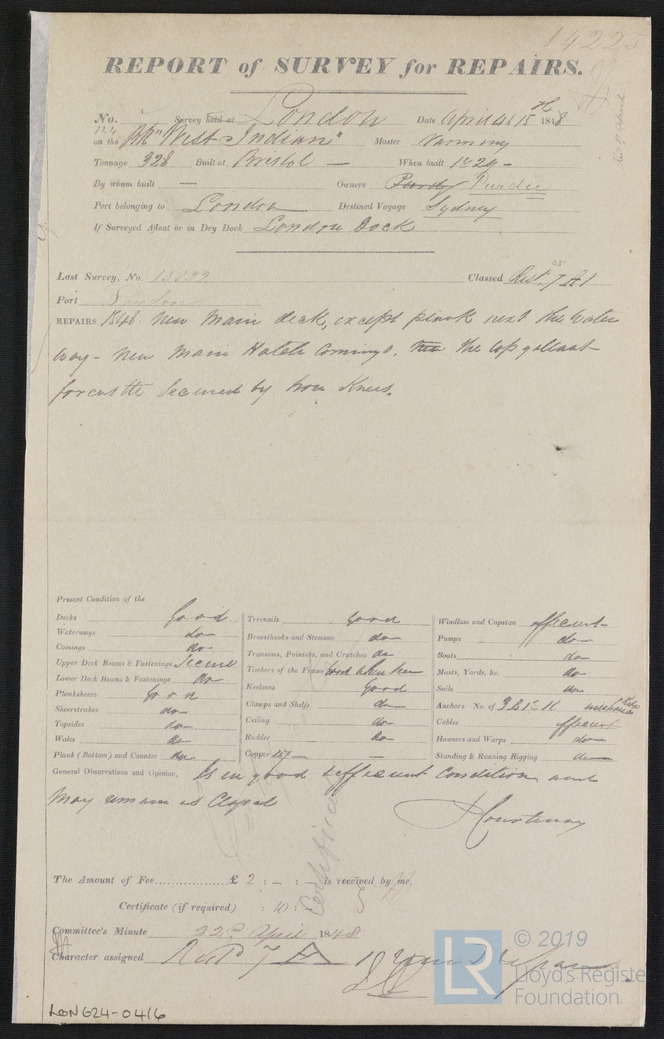 14225
REPORT of SURVEY for REPAIRS.
No. Survey held at London Date April 4 & 15th 1848
124 on the Bk "West Indian" Master
Tonnage 328 Built at Bristol — When built 1829 -
By whom built — Owners Purdy Purdie
Port belonging to London Destined Voyage Sydney
If Surveyed Afloat or in Dry Dock London Dock
Last Survey, No. Classed Rest. 45 7 A1
Port London
REPAIRS 1848 New Main deck, except plank next the Water
way - New Main Hatch Comings. the top gallant
forcastle secured by Iron Knees.
Present Condition of the
Decks Good Treenails Good Windlass and Capstan efficient
Waterways do Breasthooks and Stemson do Pumps do
Comings do Transoms, Pointers, and Crutches do Boats do
Upper Deck Beams & Fastenings Secure Timbers of the Frame Good when seen Masts, Yards, &c. do
Lower Deck Beams & Fastenings do Keelsons Good Sails do
Planksheers Good Clamps and Shelfs do Anchors No. of 3 B 1 S 1 K
Sheerstrakes do Ceiling do Cables efficient
Topsides do Rudder do Hawsers and Warps do
Wales do Copper — Standing & Running Rigging do
Plank (Bottom) and Counter do
General Observations and Opinion, Is in good & efficient condition and
may remain as Classed
Courtenay
The Amount of Fee £ 2 : - : - is received by me,
Certificate (if required) : 10 :
Certificate
Committee's Minute 22nd April 1848
Character assigned Restd 7 A 1
© 2019
LR
Lloyd's Register
Foundation
LON624-0416